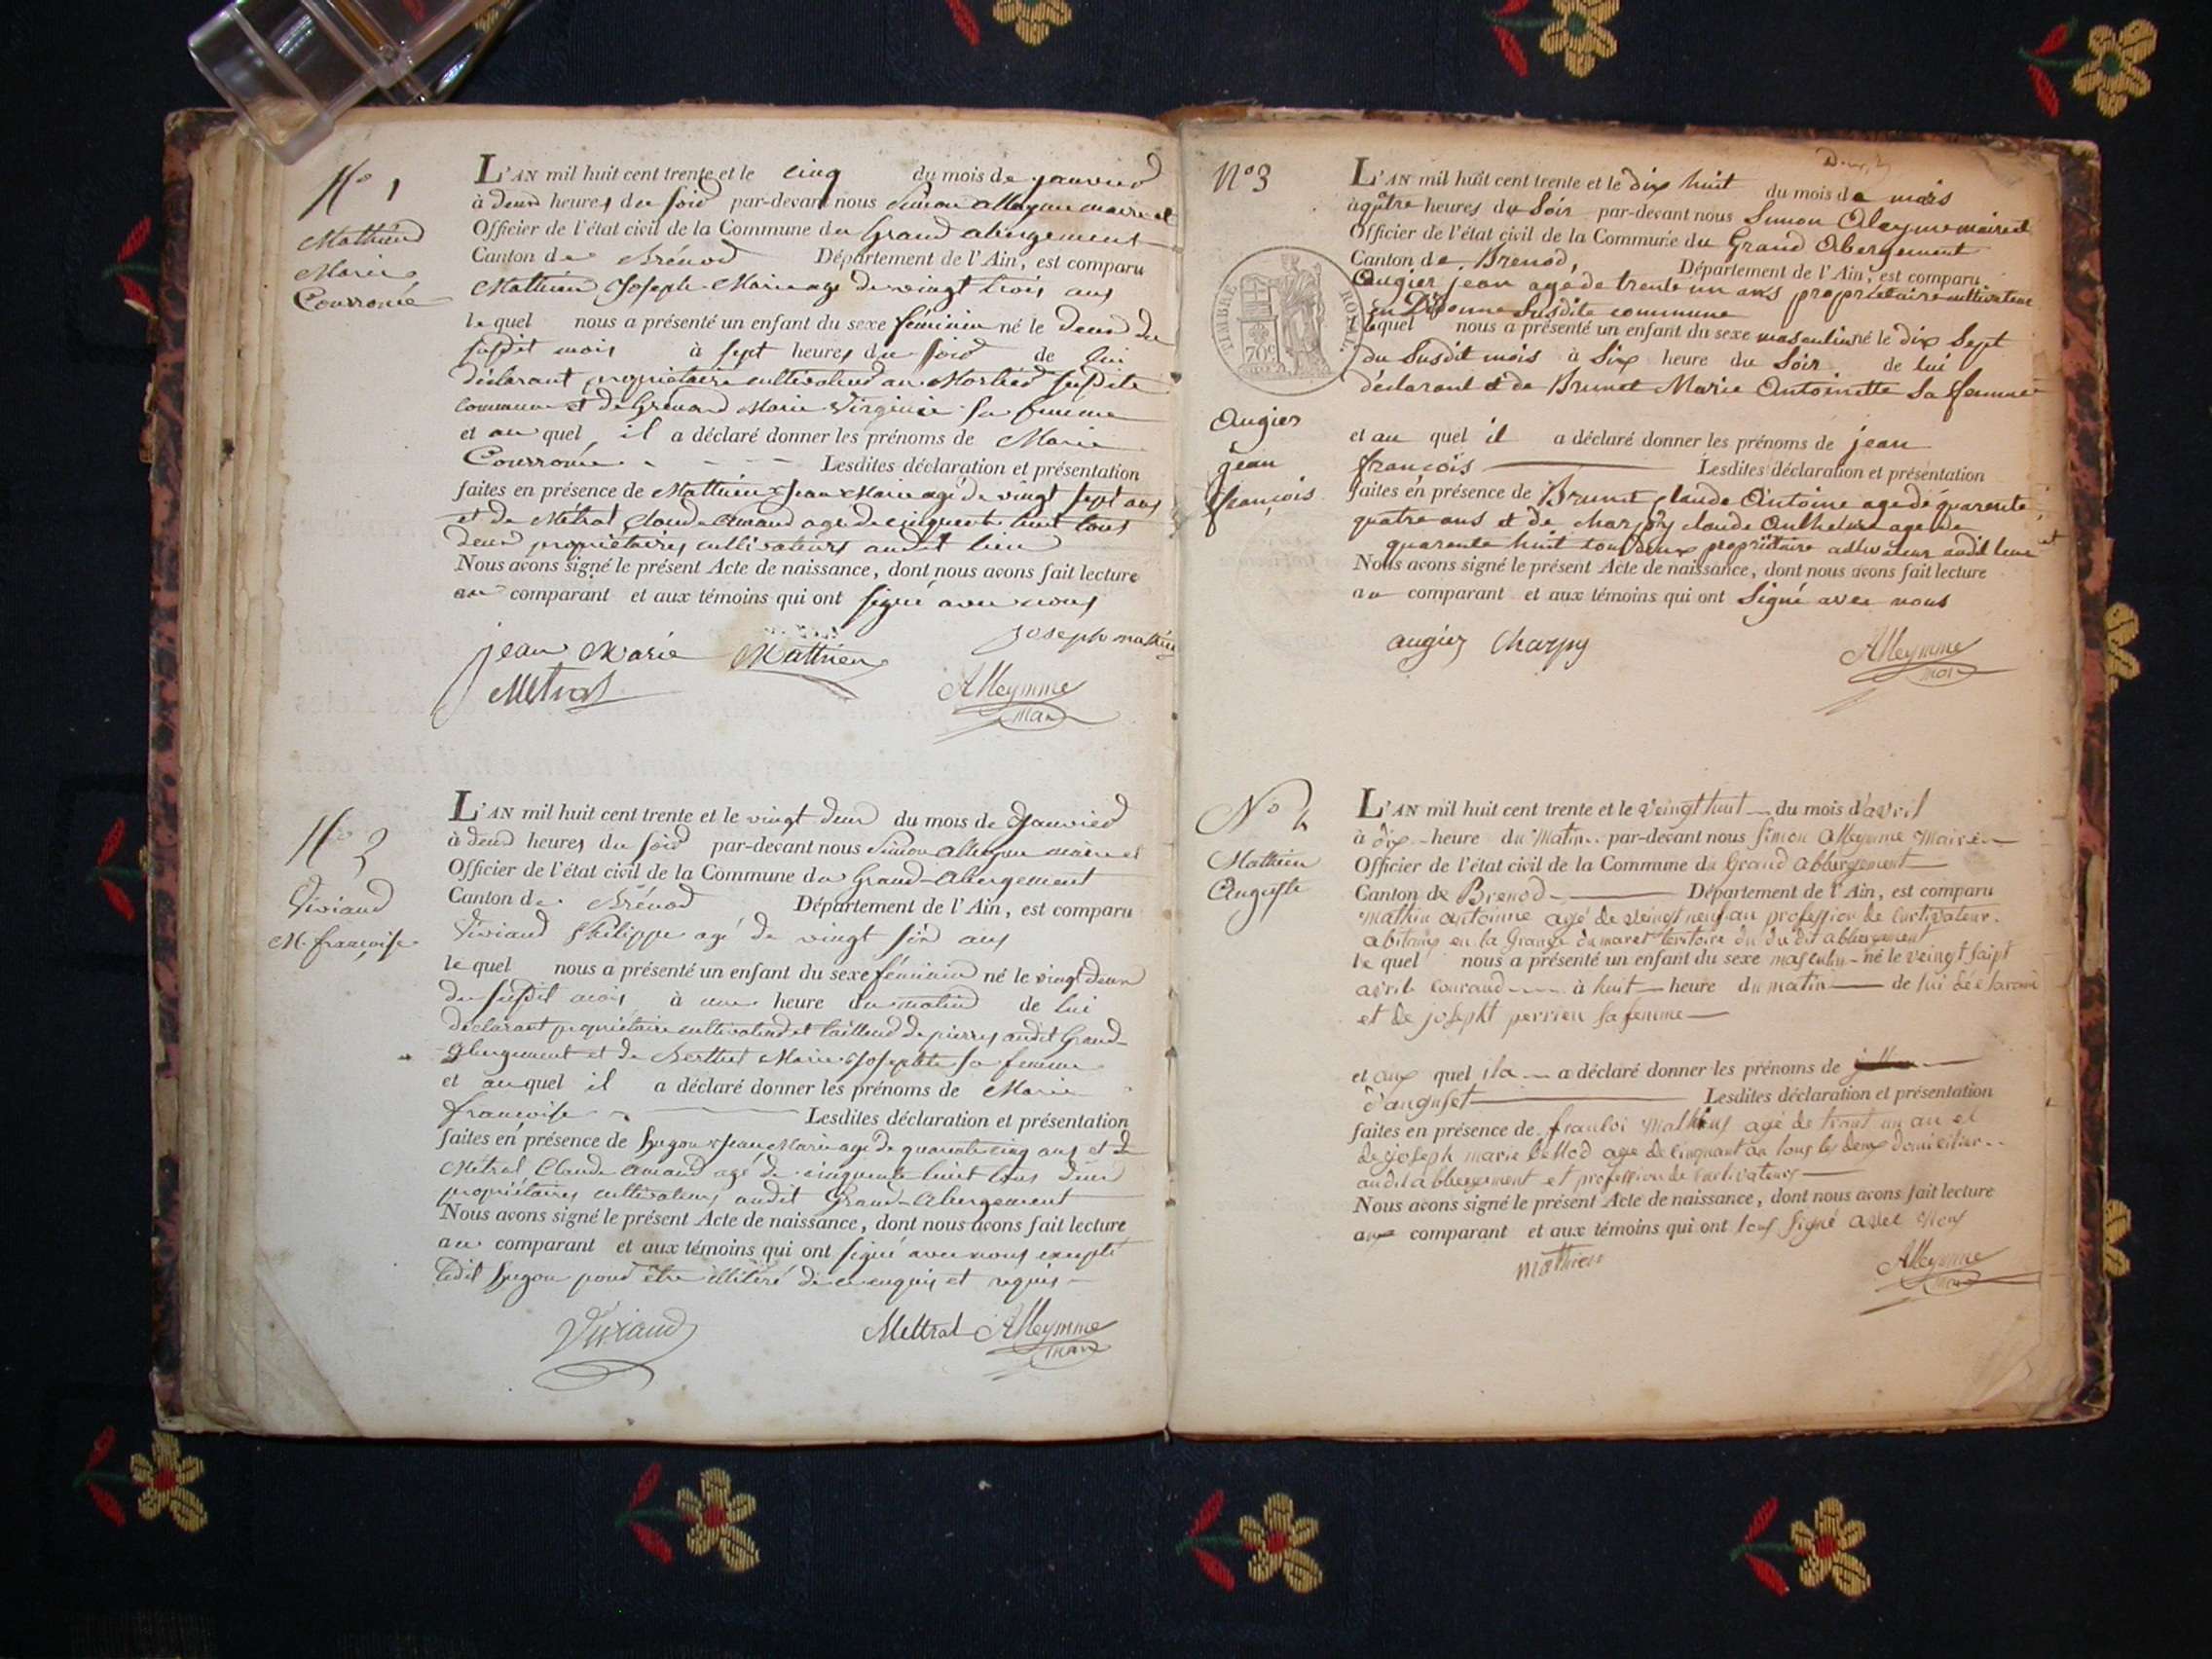 N° 1
Mathieu
Marie
Couronée
L'AN mil huit cent trente et le cinq du mois de janvier
à deux heures du soir par-devant nous Simon Alleymme maire et
Officier de l'état civil de la Commune du Grand abergement
Canton de Brénod Département de l'Ain, est comparu
Mathieu Joseph Marie age de vingt trois ans
le quel nous a présenté un enfant du sexe féminin né le deux du
susdit mois à sept heures du soir de lui
déclarant propriétaire cultivateur au susdite
commune et de Grenard Marie Virginie sa femme
et au quel il a déclaré donner les prénoms de Marie
Couronée Lesdites déclaration et présentation
faites en présence de Mathieu Jean Marie agé de vingt sept ans
et de Métral Claude Armand age de cinquante huit tous
deux propriétaires cultivateurs audit lieu
Nous avons signé le présent Acte de naissance, dont nous avons fait lecture
au comparant et aux témoins qui ont signé avec nous
jean Marie Mathieu joseph mathieu
Métral Alleymme
maire
N° 2
Viviand
M. françoise
L'AN mil huit cent trente et le vingt deux du mois de Janvier
à deux heures du soir par-devant nous Simon Alleymme maire et
Officier de l'état civil de la Commune du Grand-Abergement
Canton de Brénod Département de l'Ain, est comparu
Viviand Philippe agé de vingt six ans
le quel nous a présenté un enfant du sexe féminin né le vingt deux
du susdit mois à une heure du matin de lui
déclarant propriétaire cultivateur et tailleur de pierres audit Grand-
abergement et de Berthet Marie Josephte sa femme
et au quel il a déclaré donner les prénoms de Marie
françoise Lesdites déclaration et présentation
faites en présence de hugon Jean Marie age de quarante cinq ans et de
Métral Claude armand agé de cinquante huit tous deux
propriétaires cultivateurs audit Grand-Abergement
Nous avons signé le présent Acte de naissance, dont nous avons fait lecture
au comparant et aux témoins qui ont signé avec nous excepté
ledit hugon pour être illitéré de ce enquis et requis
Viviand Mettral Alleymme
maire
N° 3
TIMBRE ROYAL
70c
Augier
jean
françois
L'AN mil huit cent trente et le dix huit du mois de mars
à qutre heures du Soir par-devant nous Simon Aleymme maire et
Officier de l'état civil de la Commune du Grand Abergement
Canton de Brenod, Département de l'Ain, est comparu
Augier jean age de trente un ans propriétaire cultivateur
en susdite commune
lequel nous a présenté un enfant du sexe masculin né le dix Sept
du Susdit mois à Six heure du Soir de lui
déclarant et de Brunet Marie Antoinette Sa femme
et au quel il a déclaré donner les prénoms de jean
françois Lesdites déclaration et présentation
faites en présence de Brunet claude Antoine age de quarente
quatre ans et de charpy claude Anthelme age de
quarente huit tous deux propriétaire audit lieu et
Nous avons signé le présent Acte de naissance, dont nous avons fait lecture
au comparant et aux témoins qui ont Signé avec nous
augier Charpy Alleymme
maire
N° 4
Mathieu
Auguste
L'AN mil huit cent trente et le veingt huit du mois d'avril
à dix heure du Matin par-devant nous Simon Alleymme Maire
Officier de l'état civil de la Commune du Grand abbergement
Canton de Brenod Département de l'Ain, est comparu
mathiu antoinne agé de veingt neuf an profession de curtivateur
abitang en la Grange du maret teritoire du du dit abbergement
le quel nous a présenté un enfant du sexe masculin né le veingt saipt
avril couraud à huit heure du matin de lui déclarant
et de josepht perrien sa femme
et aux quel il a a déclaré donner les prénoms de
d'auguset Lesdites déclaration et présentation
faites en présence de franloi Mathius agé de trant un an et
de joseph marie bellod age de cinquant an tous les deux domicilier
au dit abbergement et profession de curtivateurs
Nous avons signé le présent Acte de naissance, dont nous avons fait lecture
aux comparant et aux témoins qui ont tous Signé avec Nous
mathieu Alleymme
maire